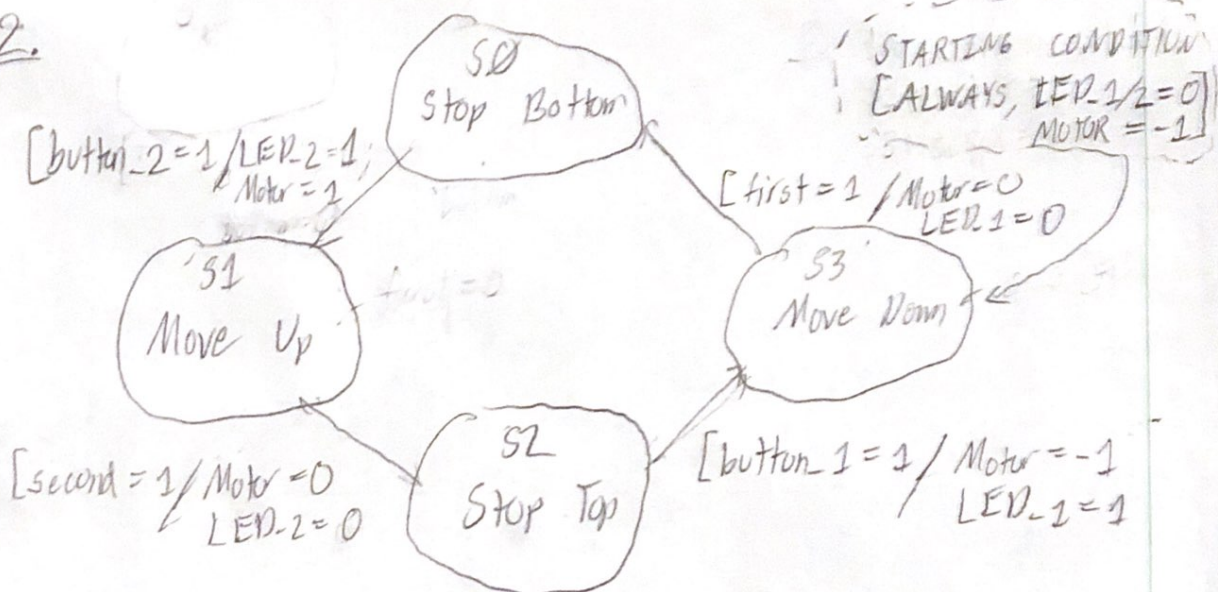 2.
S0
Stop Bottom
STARTING CONDITION
[ALWAYS, LED_1/2=0]
MOTOR = -1
[button_2=1/LED_2=1;
Motor=1
[first=1/Motor=0
LED_1=0
S1
Move Up
S3
Move Down
[second=1/Motor=0
LED_2=0
S2
Stop Top
[button_1=1/Motor=-1
LED_1=1